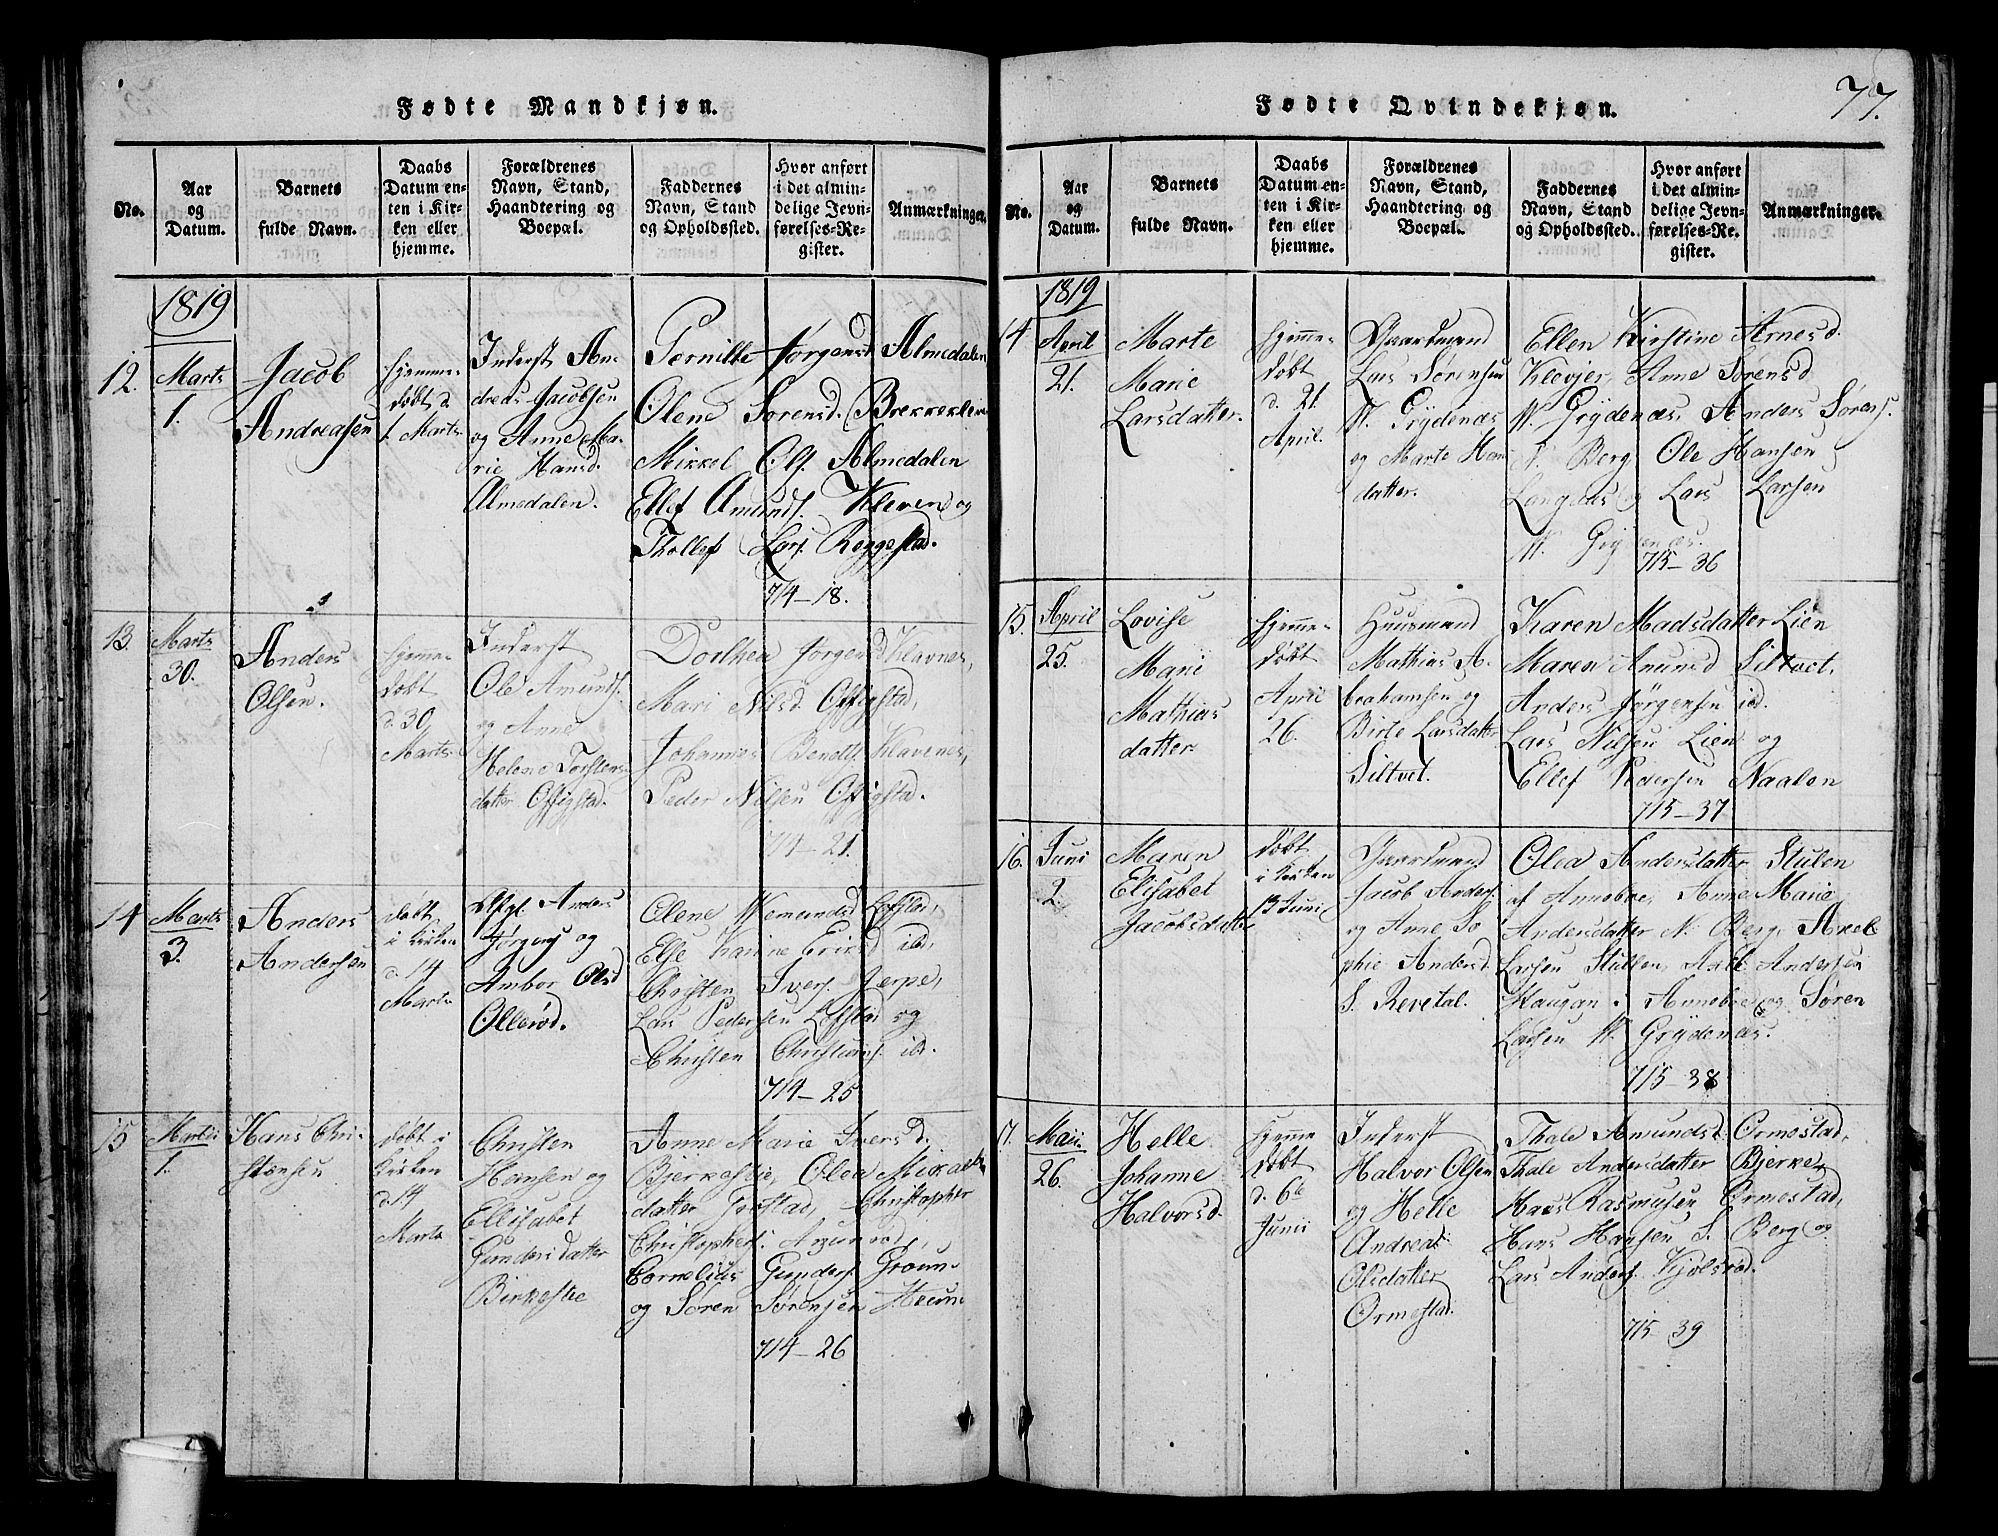 Fødte Mandkjøn.
No.
Aar
og
Datum.
Barnets
fulde Navn.
Daabs
Datum en-
ten i Kir-
ken eller
hjemme.
Forældrenes
Navn, Stand,
Haandtering og
Boepæl.
Faddernes
Navn, Stand
og Opholdssted.
Hvor anført
i det almin-
delige Jevn-
førelses-Re-
gister.
Anmærkninger.
1819
12.
Marts
1.
Jacob
Andreasen
hjemme-
døbt d.
1. Marts.
Inderst An-
dreas Jacobsen
og Anne Ma-
rie Hansd.
Almedalen.
Pernille Jørgensd Almedalen
Olene Sørensd. Brekkeklein
Mikkel Ols. Almedalen
Ellef Amunds. Kleven og
Thollef Lars. Reggestad.
714-18.
13.
Marts
30.
Anders
Olsen.
hjemme-
døbt
d. 30
Marts.
Inderst
Ole Amunds.
og Anne
Helene Torstens
datter Offigstad.
Dorthea Jørgensd Klavnes,
Mari Nilsd. Offigstad,
Johannes Bendts. Klavenes,
Peder Nilsen Offigstad.
714-21.
14
Marts
3.
Anders
Andersen
døbt
i Kirken
d. 14
Marts
Afgl. Anders
Jørgens og
Ambor Olsd
Ollerød.
Olene Wemundsd Lofstad,
Else Karine Eriksd ibd,
Christen Ivers. Jerpe,
Lars Pedersen Lofstad og
Christen Christians. ibd.
714-25
15
Martii
1.
Hans Chri-
stensen
døbt i
Kirken
d. 14
Marts
Christen
Hansen og
Ellisabet
Gundersdatter
Birkestie
Anne Marie Iversd.
Bjerkestie, Olea Mikaels
datter Grøstad, Christopher
Christophers.
Cornelius Gunders.
og Søren Sørensen
714-26
77.
Fødte Qvindekjøn.
No.
Aar
og
Datum.
Barnets
fulde Navn.
Daabs
Datum en-
ten i Kir-
ken eller
hjemme.
Forældrenes
Navn, Stand,
Haandtering og
Boepæl.
Faddernes
Navn, Stand
og Opholdssted.
Hvor anført
i det almin-
delige Jevn-
førelses-Re-
gister.
Anmærkninger.
1819
14
April
21.
Marte
Marie
Larsdatter.
hjemme-
døbt
d. 21.
April.
Gaardmand
Lars Sørensen
N. Grydenæs
og Marte Hans
datter.
Ellen Kirstine Arnesd.
Klevjer, Anne Sørensd
N. Grydenæs, Anders Sørens.
N. Berg, Ole Hansen
Langaas og Lars Larsen
N. Grydenæs.
715-36
15.
April
25.
Lovise
Marie
Mathias
datter
hjemme-
døbt
April
26.
Huusmand
Mathias A-
brahamsen og
Birte Larsdatter
Siltvet.
Karen Madsdatter Lien
Maren Anunsd Siltvet.
Anders Jørgensen ibd.
Lars Nilsen Lien og
Ellef Pedersen Naalen
715-37
16.
Juni
2.
Maren
Elisabet
Jacobsdatter
døbt
i Kirken
13 Juni
Gaardmand
Jacob Anders.
og Anne So
phie Andersd.
S. Revetal.
Olea Andersdatter Stulen
af Anneboe, Anne Marie
Andersdatter N. Berg, Axel
Larsen Stulen, Axel Andersen
Haugan. Anneboe og Søren
Larsen N. Grydenæs.
715-38
17.
Maii
26.
Helle
Johanne
Halvorsd.
hjemme
døbt
d. 6te
Junii
Inderst
Halvor Olsen
og Helle
Andrea
Olsdatter
Ormestad.
Thale Amundsd. Ormestad,
Thale Andersdatter Bjerke,
Hans Rasmusen Ormestad,
Hans Hansen S. Berg og
Lars Anders. Kjølsrød.
715-39